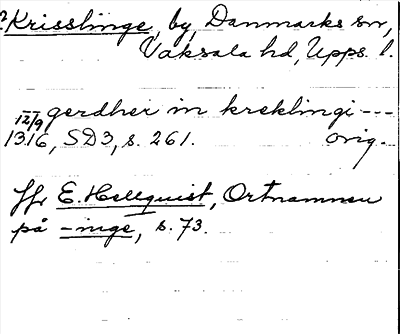 ? Krisslinge, by, Danmarks sn,
Vaksala hd, Upps. l.
gerdher in kreklingi ---
12/9 1316, SD3, s. 261. orig.
Jfr E. Hellquist, Ortnamnen
på -inge, s. 73.